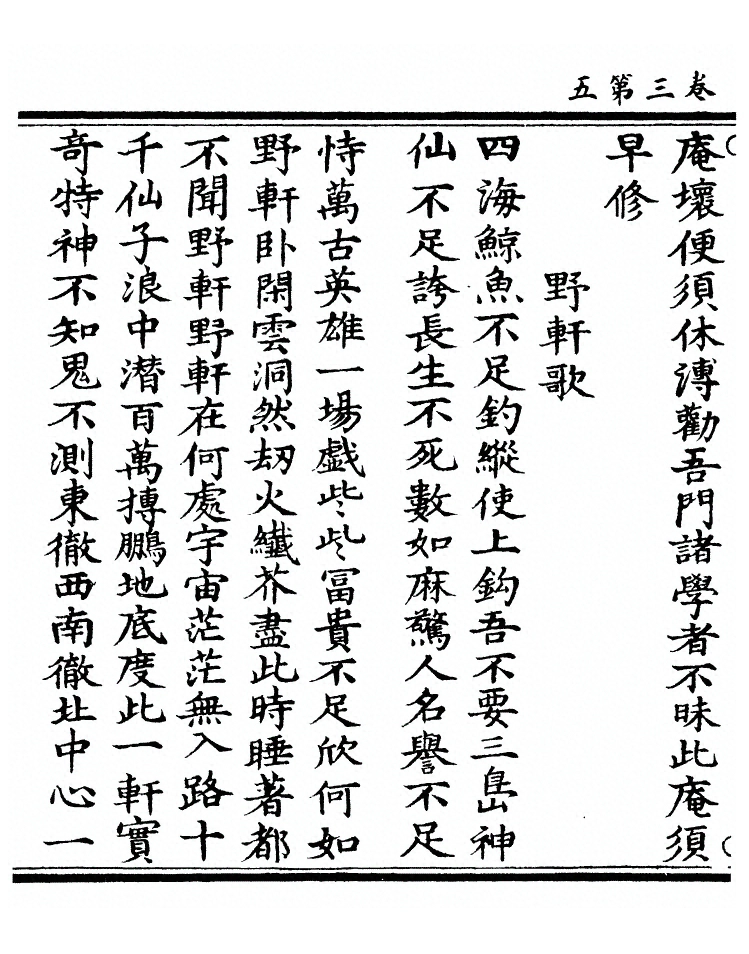 卷三第五
庵壞便須休漙勸吾門諸學者不昧此庵須
早修
野軒歌
四海鯨魚不足釣縱使上鈎吾不要三島神
仙不足誇長生不死數如麻驚人名譽不足
恃萬古英雄一場戯些些冨貴不足欣何如
野軒卧閑雲洞然刼火纎芥盡此時睡著都
不聞野軒野軒在何處宇宙茫茫無入路十
千仙子浪中潜百萬摶鵬地底度此一軒實
竒特神不知鬼不測東徹西南徹北中心一